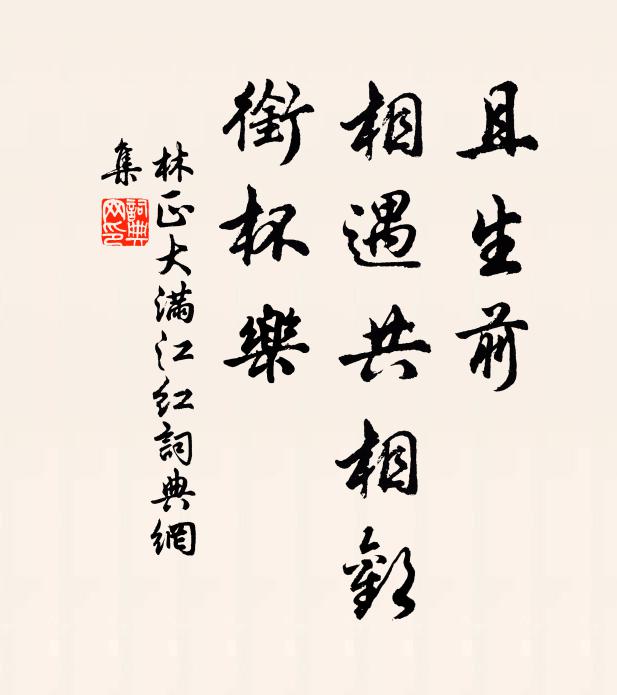 且生前
相遇共相歡
銜杯樂
林正大滿江紅詞典網
集
詞典
网印